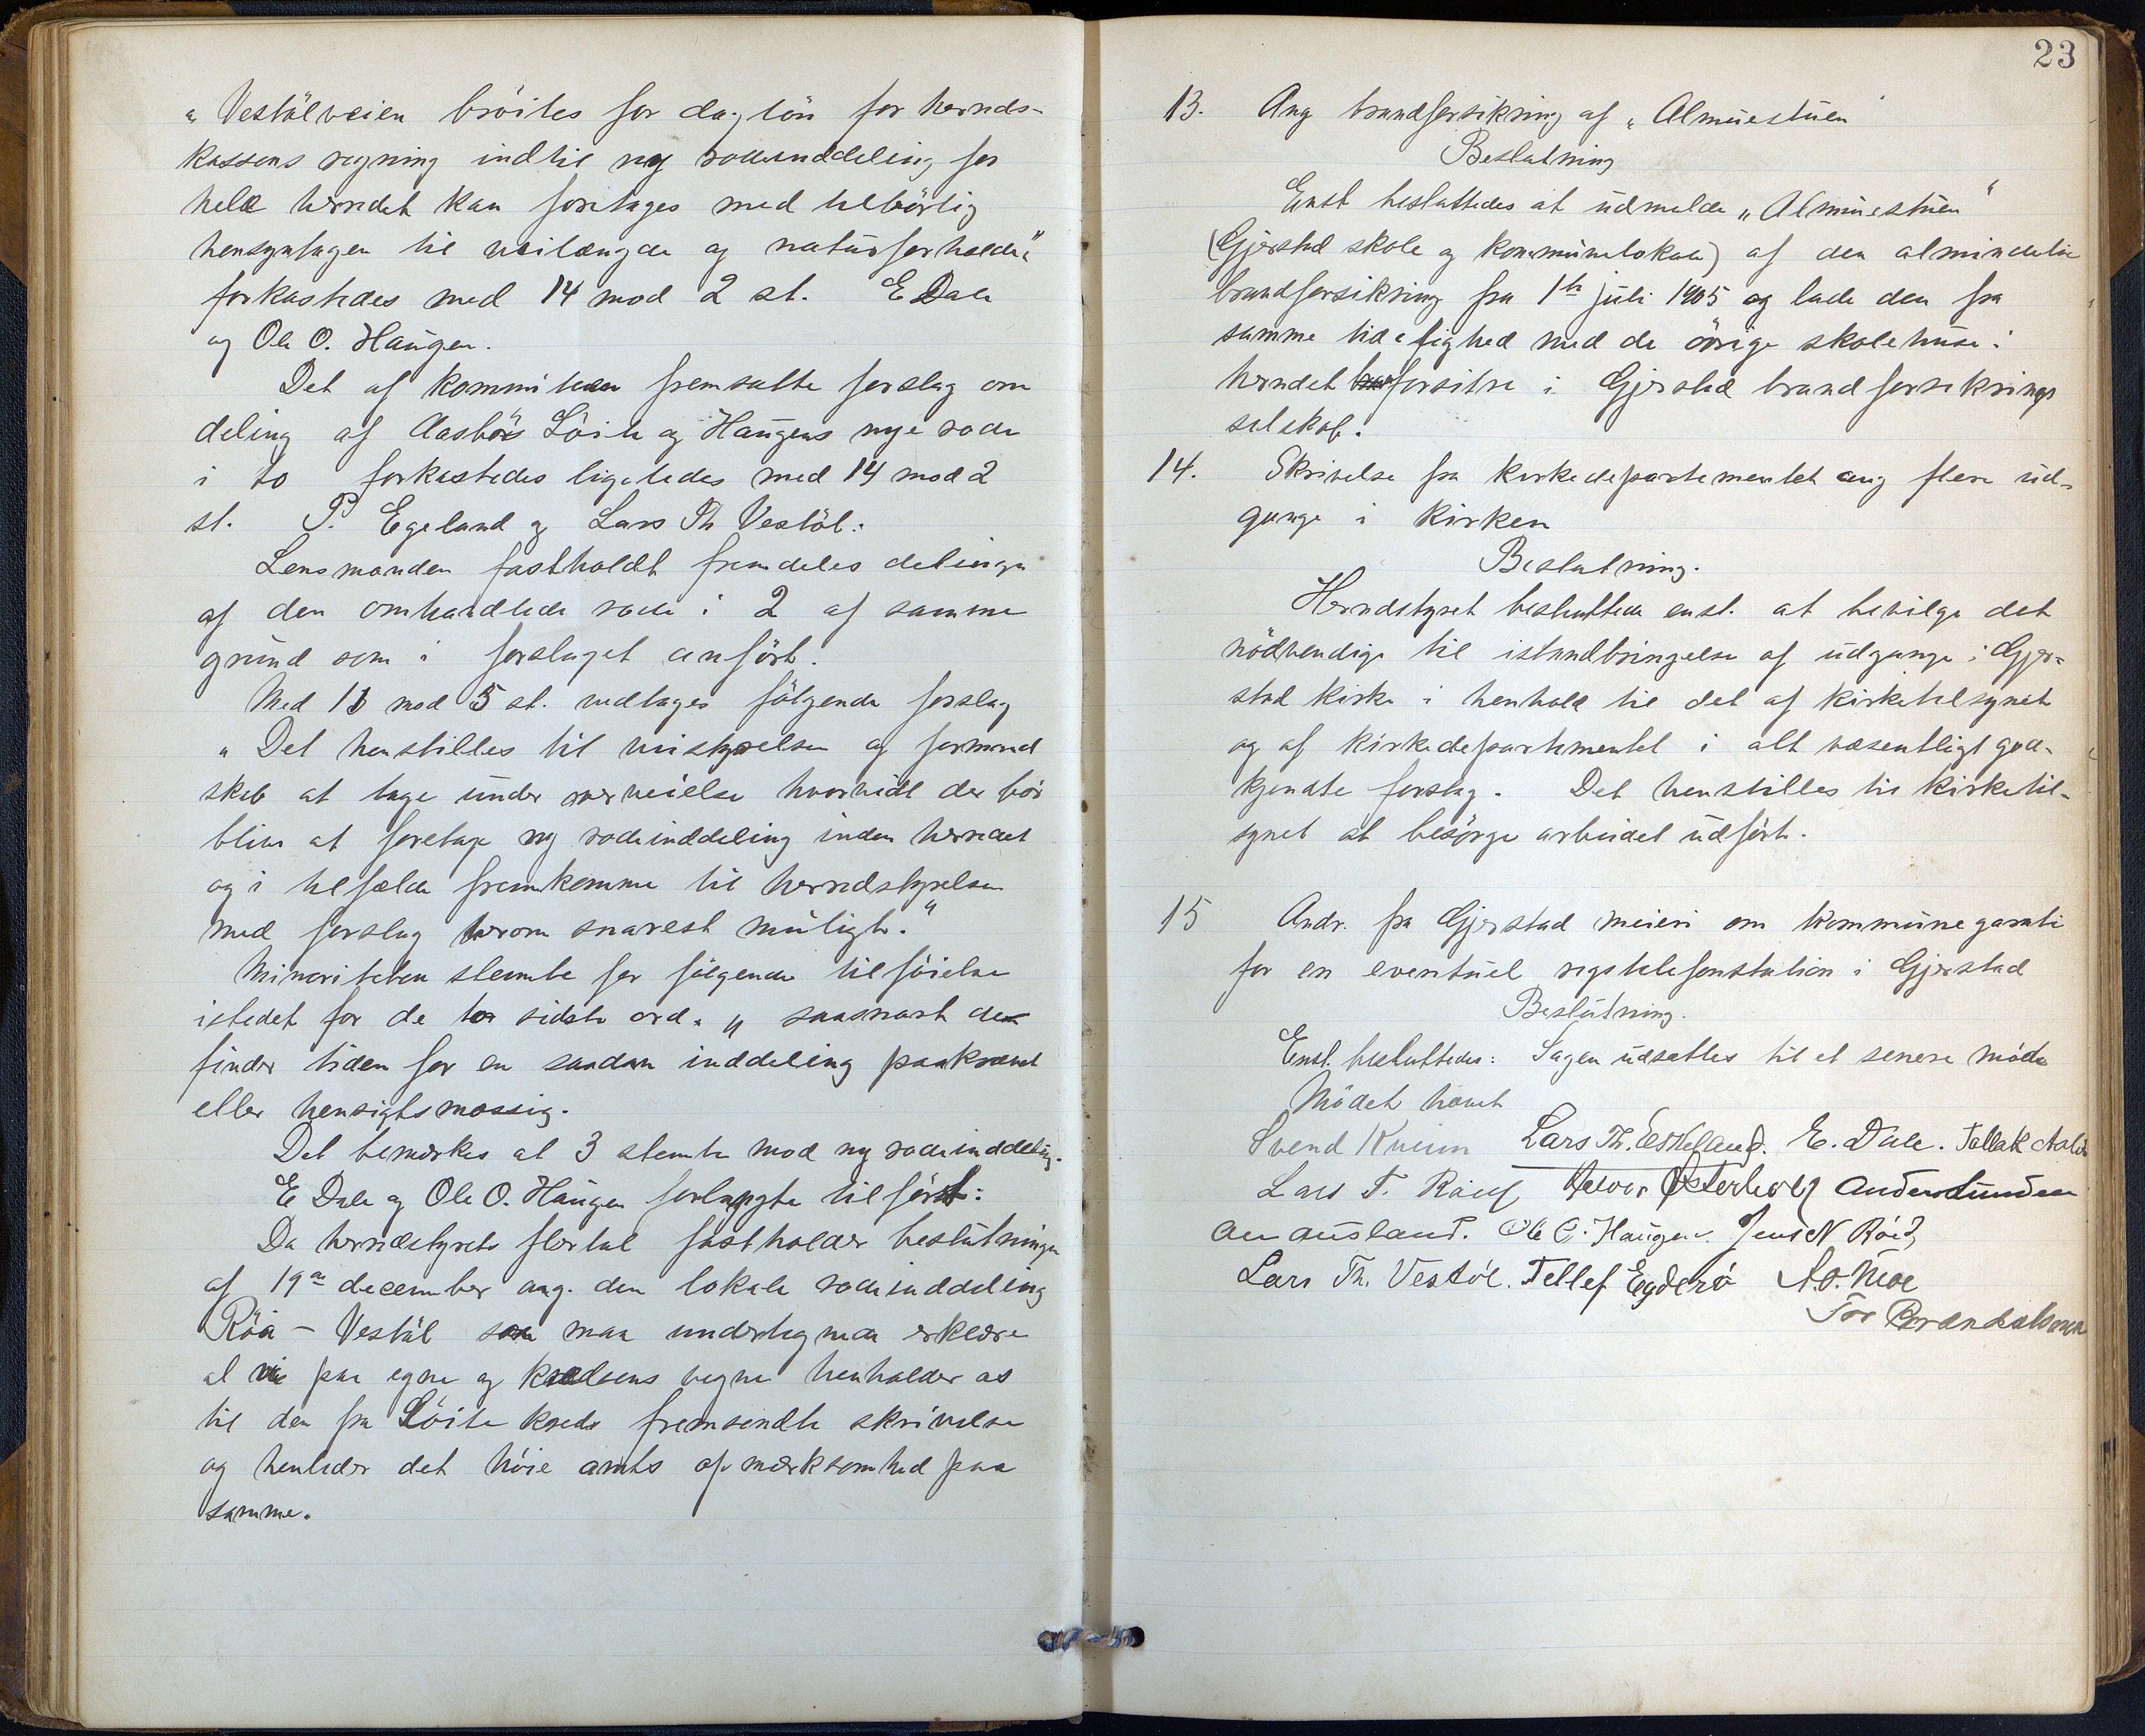 „Vestölveien bröites for daglön for herreds-
kassens regning indtil ny rodeinddeling for
hele herredet kan foretages med tilbörlig
hensyntagen til veilængde og naturforholde“
forkastedes med 14 mod 2 st. E Dale
og Ole O. Haugen.
Det af komiteen fremsatte forslag om
deling af Aasbös Löite og Haugens nye rode
i to forkastedes ligeledes med 14 mod 2
st. P. Egeland og Lars Th Vestöl.
Lensmanden fastholdt fremdeles delingen
af den omhandlede rode i 2 af samme
grund som i forslaget anfört.
Med 11 mod 5 st. vedtages fölgende forslag
„Det henstilles til veistyrelsen og formand
skab at tage under overveielse hvorvidt der bör
blive at foretage ny rodeinddeling inden herredet
og i tilfælde fremkomme til herredstyrelsen
med forslag herom snarest muligt.“
Minoriteten stemte for fölgende tilföielse
istedet for de to sidste ord: „saasnart de
finder tiden for en saadan inddeling paakrævet
eller hensigtsmæssig.
Det bemerkes at 3 stemte mod ny rodeinddeling.
E Dale og Ole O. Haugen forlangte tilfört:
Da herredstyrets flertal fastholder beslutningen
af 19de december ang. den lokale rodeinddeling
Röa - Vestöl maa undertegnede erklære
at vi paa egne og kredsens vegne henholder os
til den fra Löite kreds fremsendte skrivelse
og henleder det höie amts opmerksomhed paa
samme.
23
13. Ang brandforsikring af „Almuestuen“
Beslutning
Enst besluttedes at udmelde „Almuestuen“
(Gjerstad skole og kommunelokale) af den almindelie
brandforsikring fra 1ste juli 1905 og lade den fra
samme tid i lighed med de övrige skolehuse i
herredet forsikre i Gjerstad brandforsikrings
selskab.
14. Skrivelse fra kirkedepartementet ang flere ud-
gange i kirken
Beslutning.
Herredstyret besluttede enst. at bevilge det
nödvendige til istandbringelse af udgange i Gjer-
stad kirke i henhold til det af kirketilsynet
og af kirkedepartementet i alt væsentligt god-
kjendte forslag. Det henstilles til kirketil-
synet at besörge arbeidet udfört.
15 Andr. fra Gjerstad meieri om kommunegaranti
for en eventuel rigstelefonstation i Gjerstad
Beslutning.
Enst. besluttedes: Sagen udsættes til et senere möde
Mödet hævet
Svend Kveim Lars Th. Eskeland. E. Dale. Tallak
Lars T. Röed Østerholt Anders Lunden
Ausland. Ole O. Haugen. Jens N Röed
Lars Th. Vestöl. Tellef Egderö A. O. Moe
Tor Brændalsmoen